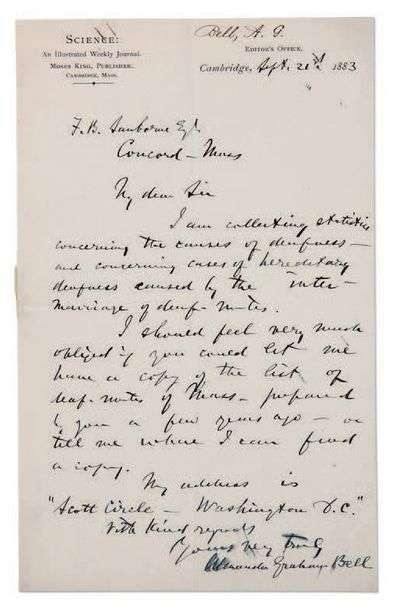 Bell, A. G.
SCIENCE:
An Illustrated Weekly Journal.
Moses King, Publisher.
Cambridge, Mass.
Editor's Office.
Cambridge, Sept. 21st 1883
F. B. Sanborne Esq.
Concord - Mass
My dear Sir
I am collecting statistics
concerning the causes of deafness -
and concerning cases of hereditary
deafness caused by the inter-
marriage of deaf-mutes.
I should feel very much
obliged if you could let me
have a copy of the list of
deaf-mutes of Mass - prepared
by you a few years ago - or
tell me where I can find
a copy.
My address is
"Scott Circle - Washington D.C."
With kind regards
Yours very truly
Alexander Graham Bell